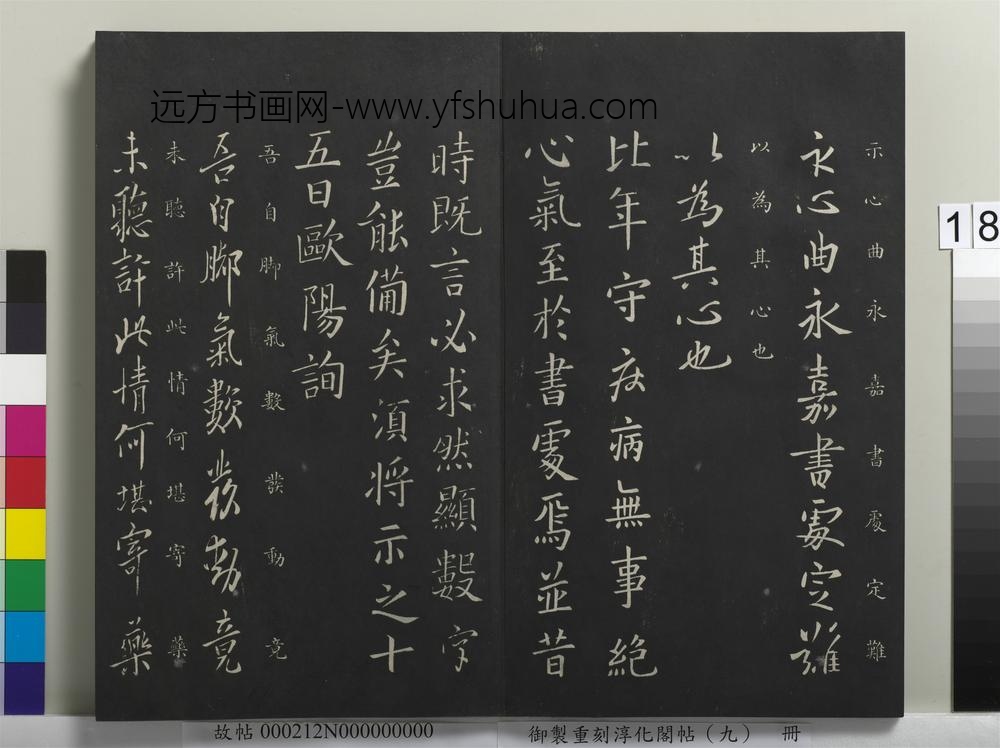 远方书画网-www.yfshuhua.com
示心曲永嘉書處定難
示心曲永嘉書處定難
以為其心也
以為其心也
比年守疾病無事絕
心氣至於書處焉並昔
時既言必求然顯數字
豈能備矣須將示之十
五日歐陽詢
吾自脚氣數發動竟
吾自脚氣數發動竟
未聽許此情何堪寄藥
未聽許此情何堪寄藥
18
故帖 000212N000000000
御製重刻淳化閣帖（九） 冊